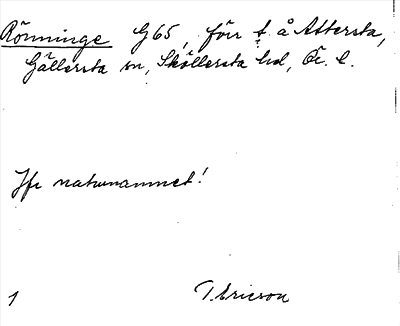 Rönninge G65, förr t. å Attersta,
Gällersta sn, Sköllersta hd, Ör. l.
Jfr naturnamnet!
1 T. Ericson